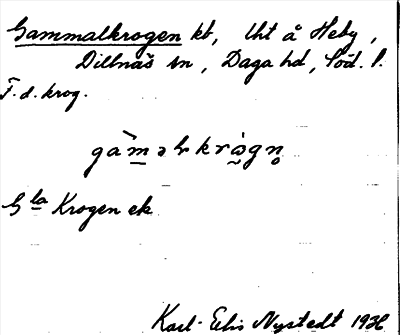 Gammalkrogen kt, Uht å Heby,
Dillnäs sn, Daga hd, Söd. l.
F.d. krog.
gàməlkrògn̥
Gla Krogen ek
Karl-Elis Nystedt 1936